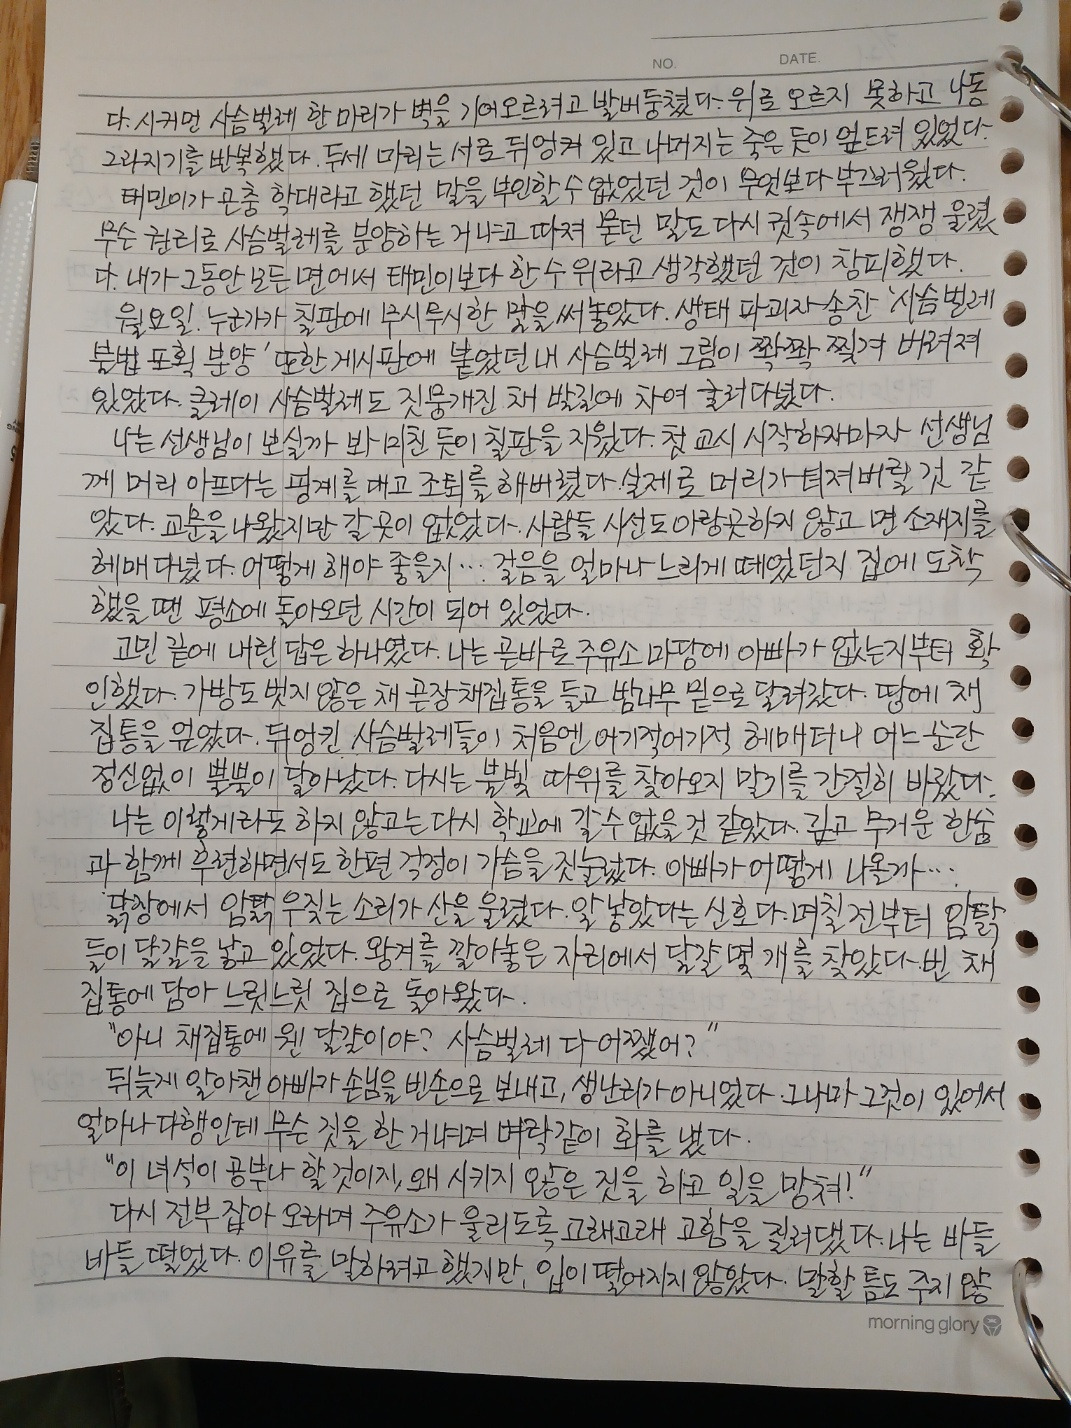 NO. DATE.
다. 시커먼 사슴벌레 한 마리가 벽을 기어오르려고 발버둥쳤다. 위로 오르지 못하고 나동
그라지기를 반복했다. 두세 마리는 서로 뒤엉켜 있고 나머지는 죽은 듯이 엎드려 있었다.
태민이가 곤충 학대라고 했던 말을 부인할 수 없었던 것이 무엇보다 부끄러웠다.
무슨 권리로 사슴벌레를 분양하는 거냐고 따져 묻던 말도 다시 귓속에서 쟁쟁 울렸
다. 내가 그동안 모든 면에서 태민이보다 한 수 위라고 생각했던 것이 창피했다.
월요일. 누군가가 칠판에 무시무시한 말을 써놓았다. 생태 파괴자 송찬 '사슴벌레
불법 포획 분양' 또한 게시판에 붙었던 내 사슴벌레 그림이 쫙쫙 찢겨 버려져
있었다. 클레이 사슴벌레도 짓뭉개진 채 발길에 차여 굴러다녔다.
나는 선생님이 보실까 봐 미친 듯이 칠판을 지웠다. 첫 교시 시작하자마자 선생님
께 머리 아프다는 핑계를 대고 조퇴를 해버렸다. 실제로 머리가 터져버릴 것 같
았다. 교문을 나왔지만 갈 곳이 없었다. 사람들 시선도 아랑곳하지 않고 면 소재지를
헤매 다녔다. 어떻게 해야 좋을지…. 걸음을 얼마나 느리게 떼었던지 집에 도착
했을 땐 평소에 돌아오던 시간이 되어 있었다.
고민 끝에 내린 답은 하나였다. 나는 곧바로 주유소 마당에 아빠가 없는지부터 확
인했다. 가방도 벗지 않은 채 곧장 채집통을 들고 밤나무 밑으로 달려갔다. 땅에 채
집통을 엎었다. 뒤엉킨 사슴벌레들이 처음엔 어기적어기적 헤매더니 어느 순간
정신없이 뿔뿔이 달아났다. 다시는 불빛 따위를 찾아오지 말기를 간절히 바랐다.
나는 이렇게라도 하지 않고는 다시 학교에 갈 수 없을 것 같았다. 깊고 무거운 한숨
과 함께 후련하면서도 한편 걱정이 가슴을 짓눌렀다. 아빠가 어떻게 나올까….
닭장에서 암탉 우짖는 소리가 산을 울렸다. 알 낳았다는 신호다. 며칠 전부터 암탉
들이 달걀을 낳고 있었다. 왕겨를 깔아놓은 자리에서 달걀 몇 개를 찾았다. 빈 채
집통에 담아 느릿느릿 집으로 돌아왔다.
"아니 채집통에 웬 달걀이야? 사슴벌레 다 어쨌어?"
뒤늦게 알아챈 아빠가 손님을 빈손으로 보내고, 생난리가 아니었다. 그나마 그것이 있어서
얼마나 다행인데 무슨 짓을 한 거냐며 벼락같이 화를 냈다.
"이 녀석이 공부나 할 것이지, 왜 시키지 않은 짓을 하고 일을 망쳐!"
다시 전부 잡아 오라며 주유소가 울리도록 고래고래 고함을 질러댔다. 나는 바들
바들 떨었다. 이유를 말하려고 했지만, 입이 떨어지지 않았다. 말할 틈도 주지 않
morning glory